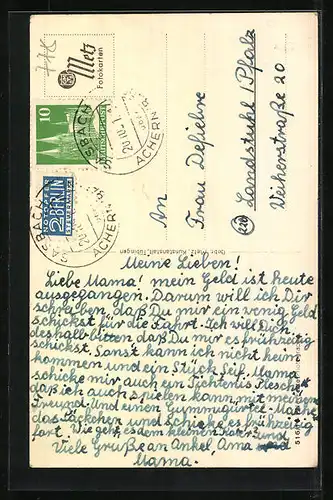 778
Metz
Fotokarten
10
NOTOPFER
2 BERLIN
STEUERMARKE
SASBACH
ACHERN
SASBACH
ACHERN
An
Frau Defiehre
Landstuhl /Pfalz
Weiherstraße 20
Gebr. Metz, Kunstanstalt, Tübingen
Meine Lieben!
Liebe Mama! mein Geld ist heute
ausgegangen. Darum will ich Dir
schreiben, daß Du mir ein wenig Geld
schickst für die Fahrt. Ich will Dich
deshalb bitten daß Du mir es frühzeitig
schickst. Sonst kann ich nicht heim
kommen und ein Stück Seif. Mama
schicke mir auch ein Tischtennis
daß ich auch spielen kann, mit meinem
Freund und einen Gummigürtel. Mache
das Päckchen und schicke es frühzeitig
fort. Wie geht es dem kleinen Kater? und
Viele Grüße an Onkel, Oma und
Mama.